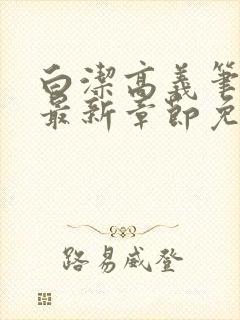 白潔高義筆
最新章節免
路易威登